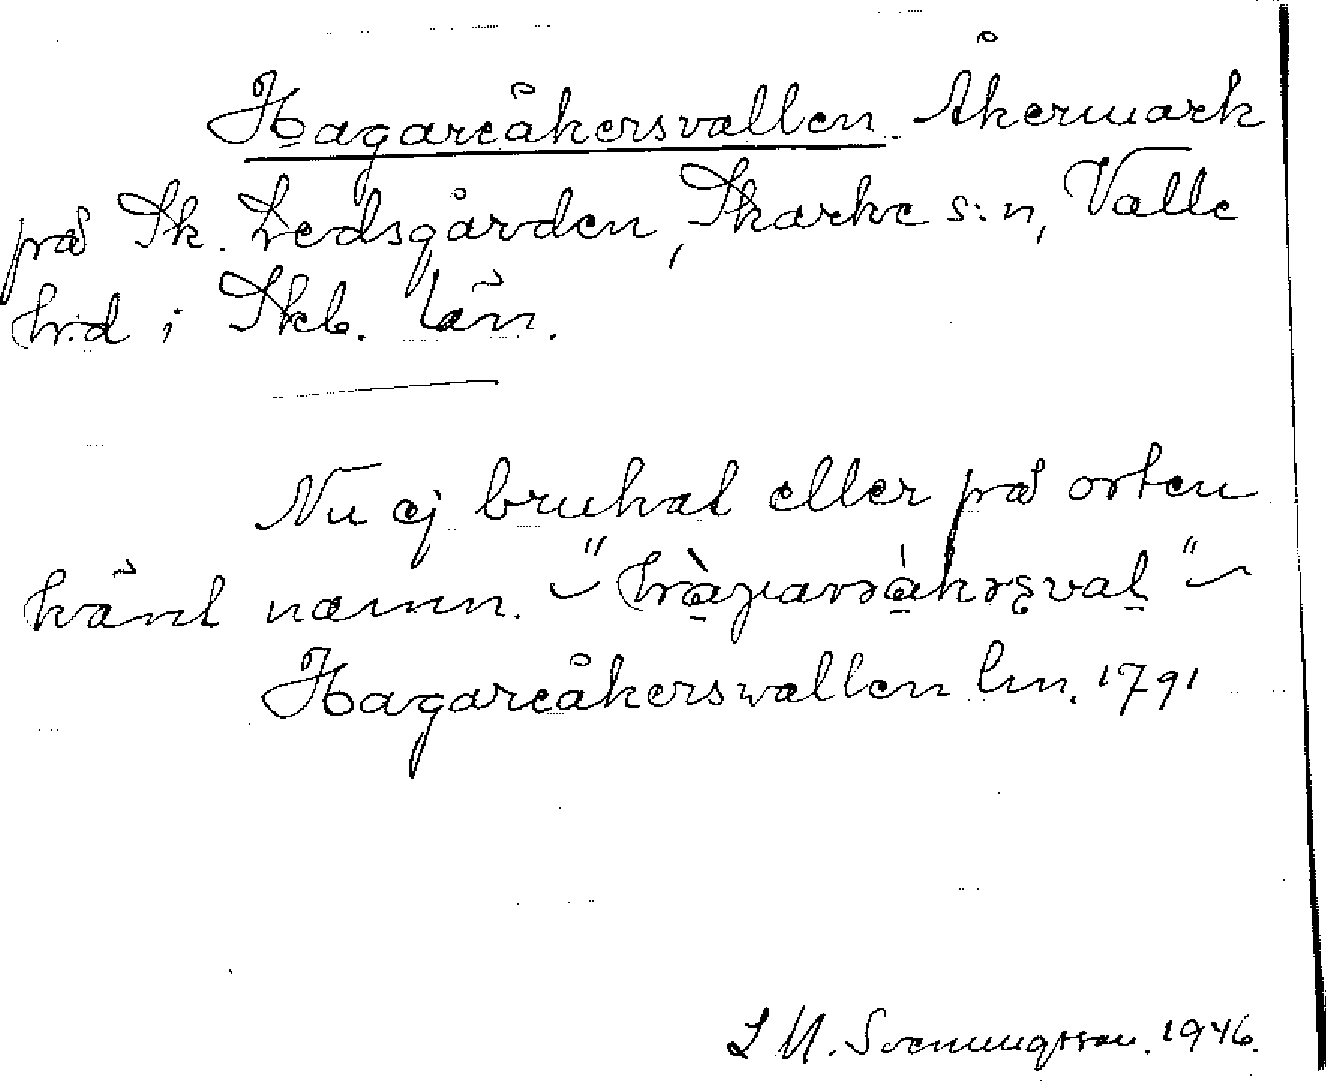 Hagareåkersvallen. Åkermark
på Sk. Ledsgården, Skarke s:n, Valle
h:d i Skb. län.
Nu ej brukat eller på orten
känt namn.
Hagareåkersvallen lm. 1791
L M. Svenungsson. 1946.